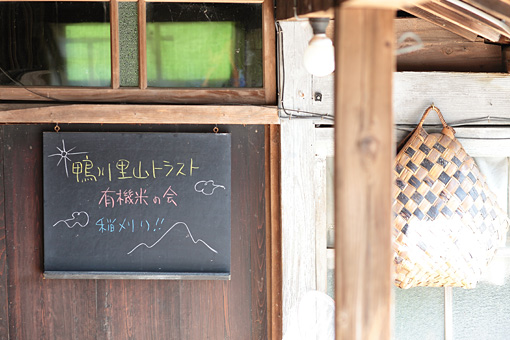 鴨川里山トラスト
有機米の会
稲刈り!!